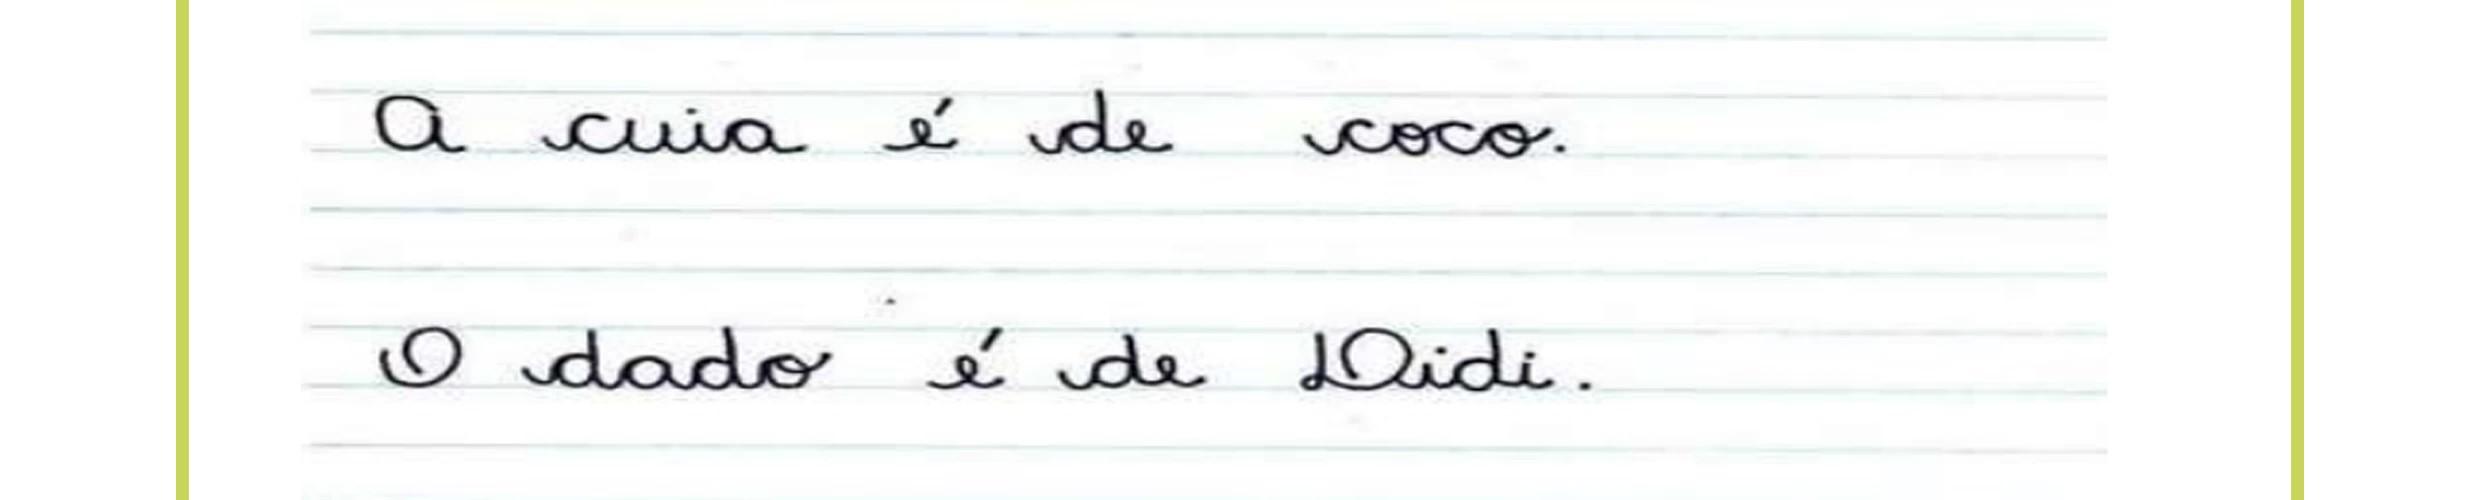 A cuia é de coco.
O dado é de Didi.